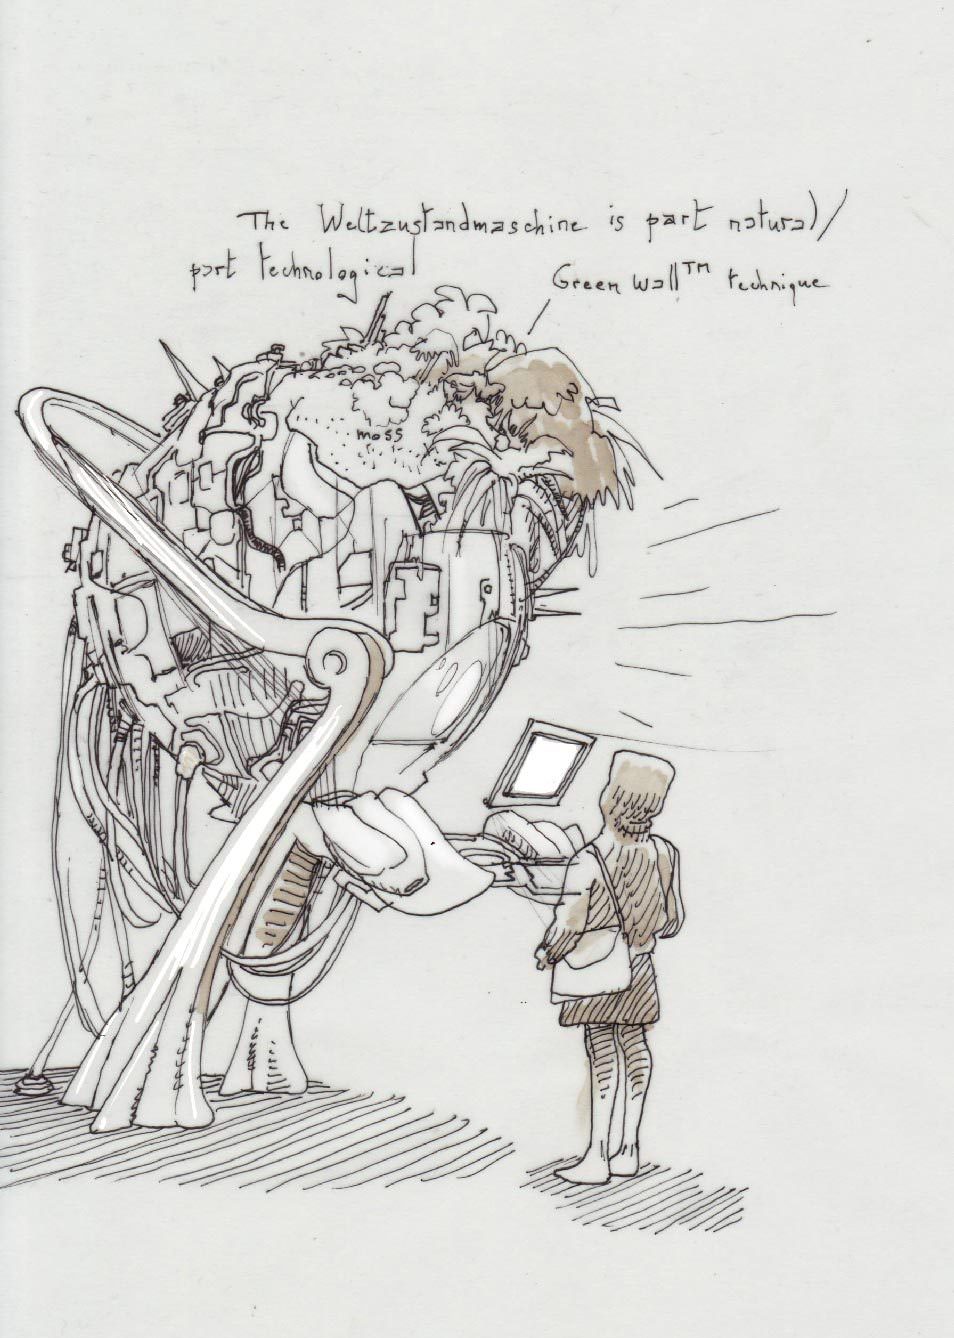 The Weltzustandmaschine is part natural/
part technological
Green Wall™ technique
moss